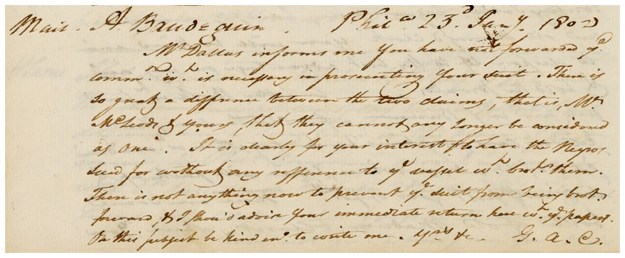 Mair. A Baudequin. Phila 23d Jany. 1802
Mr. Dallas informs me you have not forwarded ye
commn. wh. is necessary in prosecuting your suit. There is
so great a diffrence between the two claims, that is, Mr.
McLeods & yours, that they cannot any longer be considered
as one. It is clearly for your interest to have the Negros
sued for without any refference to ye vessel wh. brot. them.
There is not any thing now to prevent ye suit from being brot.
forward, & I shou'd advise your immediate return here wt. ye papers.
On this subject be kind eno. to write me. yrs &c. G. A. C.